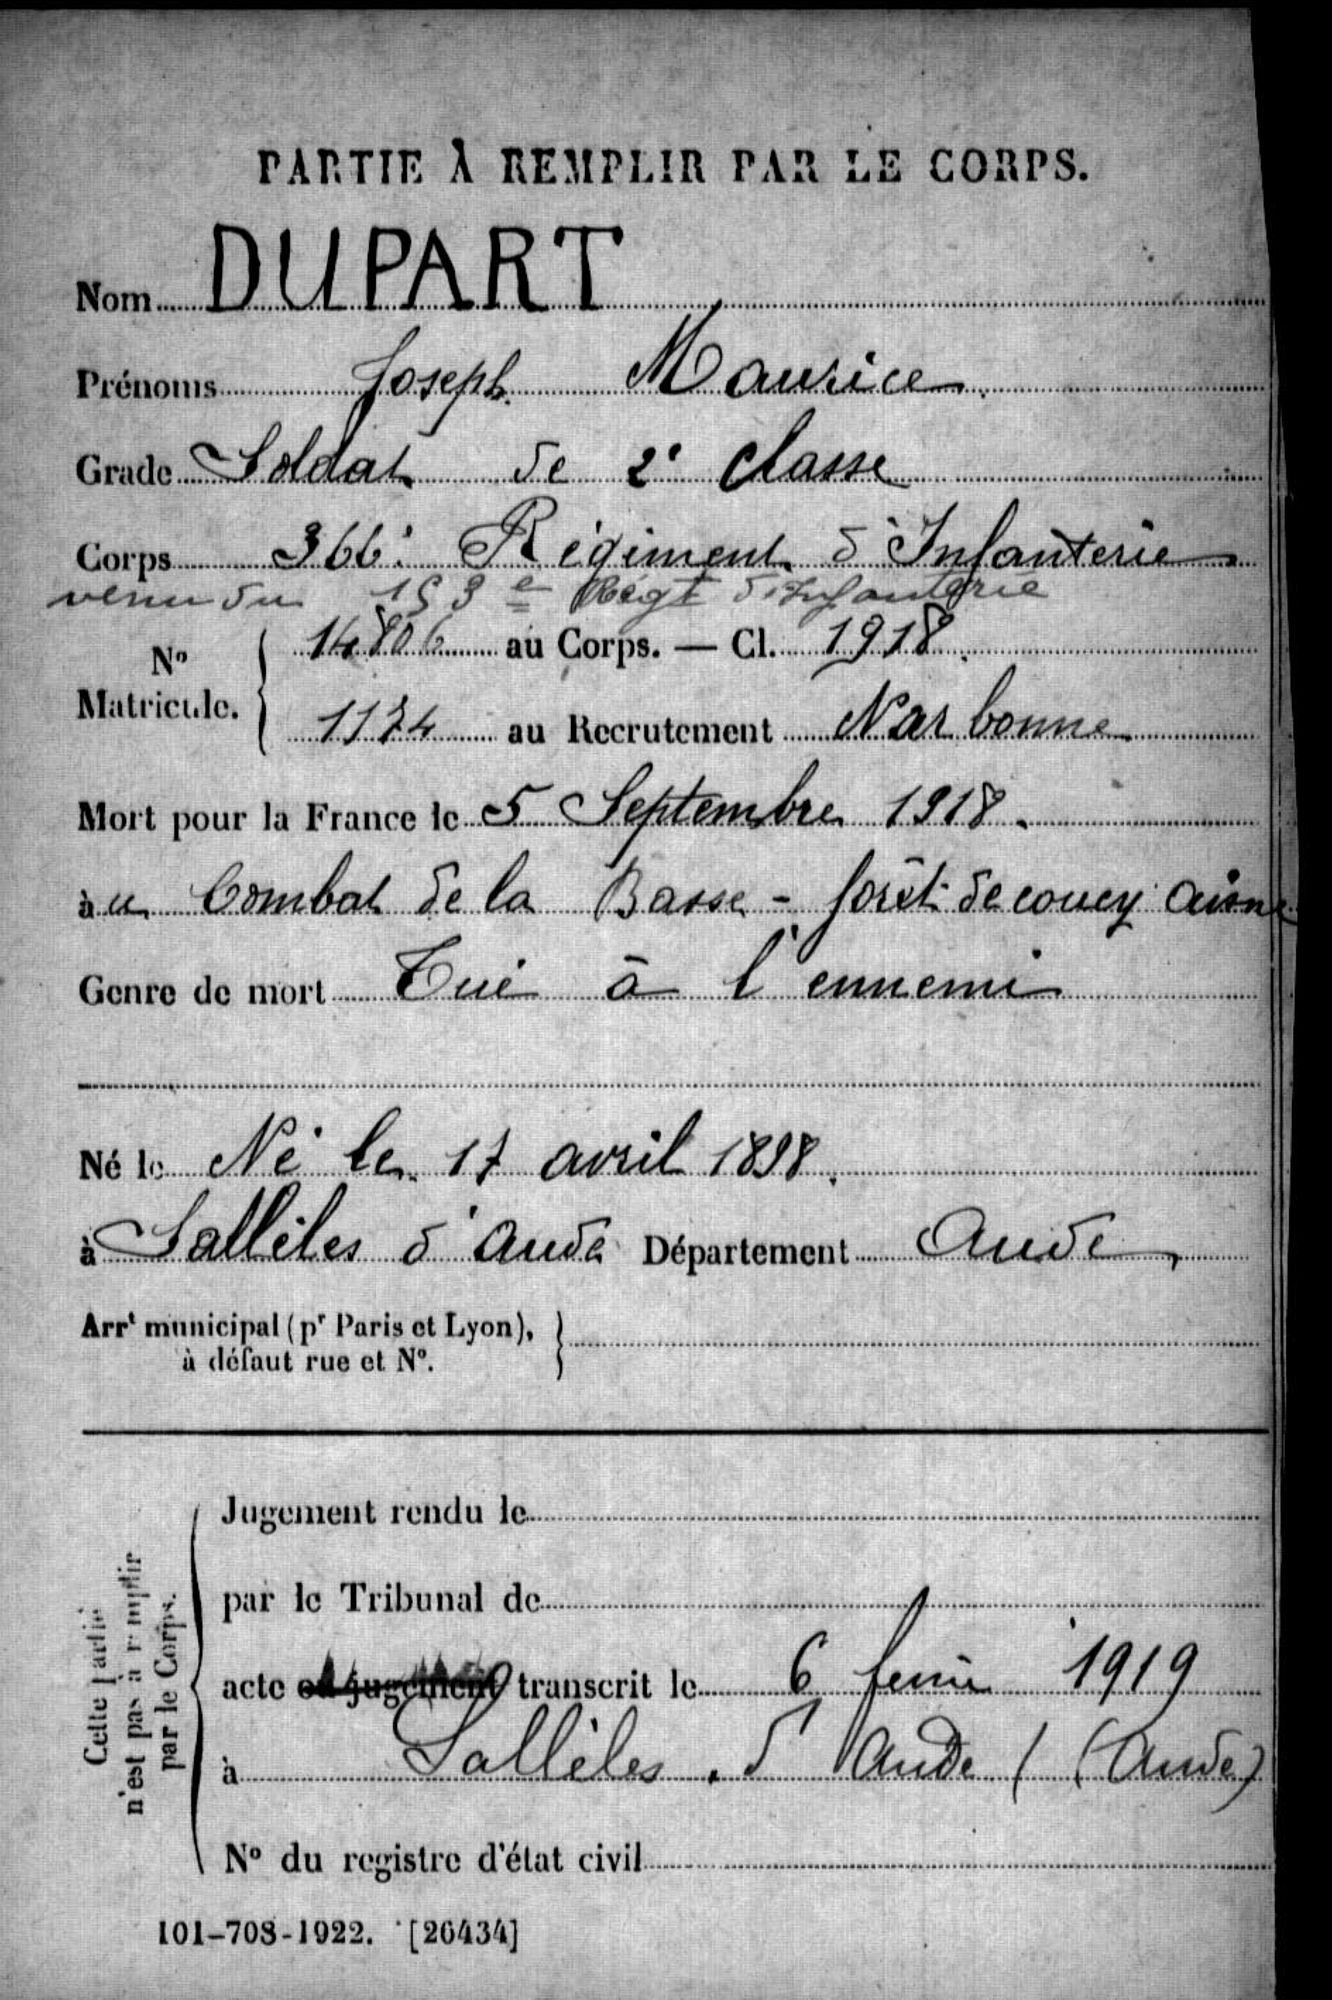 PARTIE À REMPLIR PAR LE CORPS.
Nom DUPART
Prénoms Joseph Maurice
Grade Soldat de 2e classe
Corps 366e Régiment d'Infanterie
venu du 153e Régt d'Infanterie
No Matricule. 14806 au Corps. — Cl. 1918
1174 au Recrutement Narbonne
Mort pour la France le 5 Septembre 1918.
au Combat de la Basse - forêt de coucy Aisne
Genre de mort Tué à l'ennemi
Né le Né le 17 avril 1898.
à Sallèles d'Aude Département Aude
Arrt municipal (pr Paris et Lyon),
à défaut rue et No.
Jugement rendu le
par le Tribunal de
acte ou jugement transcrit le 6 février 1919
à Sallèles d'Aude (Aude)
No du registre d'état civil
Cette partie
n'est pas à remplir
par le Corps.
101-708-1922. [26434]